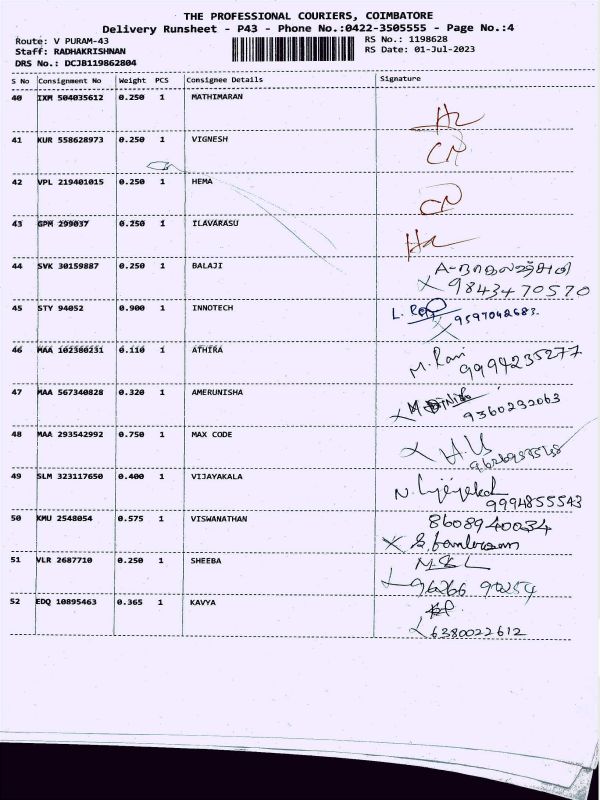 THE PROFESSIONAL COURIERS, COIMBATORE
Delivery Runsheet - P43 - Phone No.:0422-3505555 - Page No.:4
Route: V PURAM-43 RS No.: 1198628
Staff: RADHAKRISHNAN RS Date: 01-Jul-2023
DRS No.: DCJB119862804
S No Consignment No Weight PCS Consignee Details Signature
40 IXM 504035612 0.250 1 MATHIMARAN
41 KUR 558628973 0.250 1 VIGNESH
42 VPL 219401015 0.250 1 HEMA
43 GPM 299037 0.250 1 ILAVARASU
44 SVK 30159887 0.250 1 BALAJI
9843470570
45 STY 94052 0.900 1 INNOTECH
9597042683.
46 MAA 102380231 0.110 1 ATHIRA M. Rani
9994235277
47 MAA 567340828 0.320 1 AMERUNISHA
9360292063
48 MAA 293542992 0.750 1 MAX CODE
49 SLM 323117650 0.400 1 VIJAYAKALA
9994855543
50 KMU 2548054 0.575 1 VISWANATHAN 8608940034
51 VLR 2687710 0.250 1 SHEEBA
96266 90254
52 EDQ 10895463 0.365 1 KAVYA
6380022612